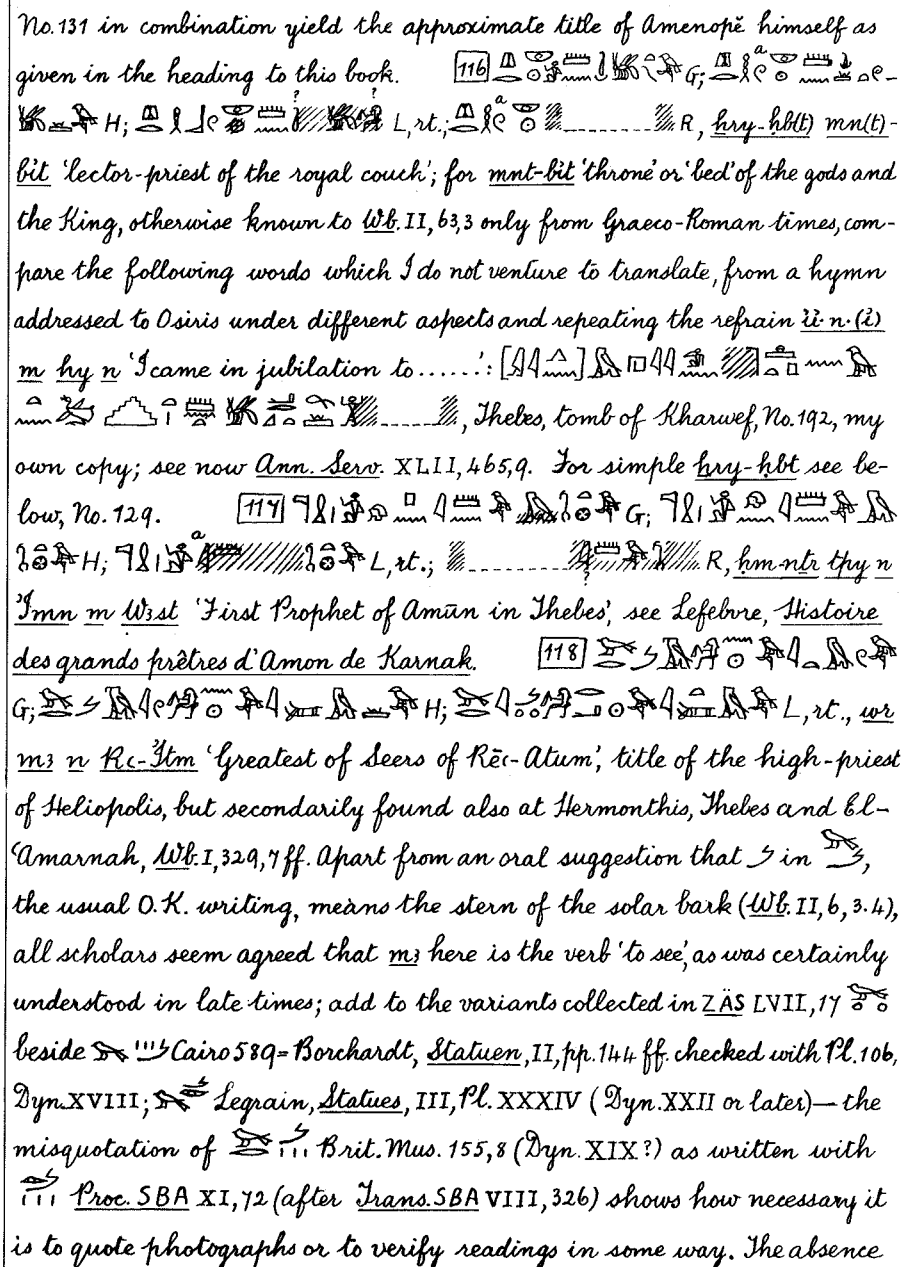 No. 131 in combination yield the approximate title of Amenopĕ himself as
given in the heading to this book. 116 G;
H; L, rt.; R, ḥry-ḥb(t) mn(t)-
bit ‘lector-priest of the royal couch’; for mnt-bit ‘throne’ or ‘bed’ of the gods and
the King, otherwise known to Wb. II, 63,3 only from Graeco-Roman times, com-
pare the following words which I do not venture to translate, from a hymn
addressed to Osiris under different aspects and repeating the refrain ii·n·(i)
m hy n ‘I came in jubilation to ......’:
, Thebes, tomb of Kharwef, No. 192, my
own copy; see now Ann. Serv. XLII, 465,9. For simple ḥry-ḥbt see be-
low, No. 129. 117 G;
H; L, rt.; R, ḥm-nṯr tpy n
’Imn m Wꜣst ‘First Prophet of Amūn in Thebes’, see Lefebvre, Histoire
des grands prêtres d’Amon de Karnak. 118
G; H; L, rt., wr
mꜣ n Rꜥ-’Itm ‘Greatest of Seers of Rēꜥ-Atum’, title of the high-priest
of Heliopolis, but secondarily found also at Hermonthis, Thebes and El-
‘Amarnah, Wb. I, 329, 7 ff. Apart from an oral suggestion that in ,
the usual O.K. writing, means the stern of the solar bark (Wb. II, 6, 3.4),
all scholars seem agreed that mꜣ here is the verb ‘to see’, as was certainly
understood in late times; add to the variants collected in ZÄS LVII, 17
beside Cairo 589 = Borchardt, Statuen, II, pp. 144 ff. checked with Pl. 106,
Dyn. XVIII; Legrain, Statues, III, Pl. XXXIV (Dyn. XXII or later)—the
misquotation of Brit. Mus. 155, 8 (Dyn. XIX?) as written with
Proc. SBA XI, 72 (after Trans. SBA VIII, 326) shows how necessary it
is to quote photographs or to verify readings in some way. The absence